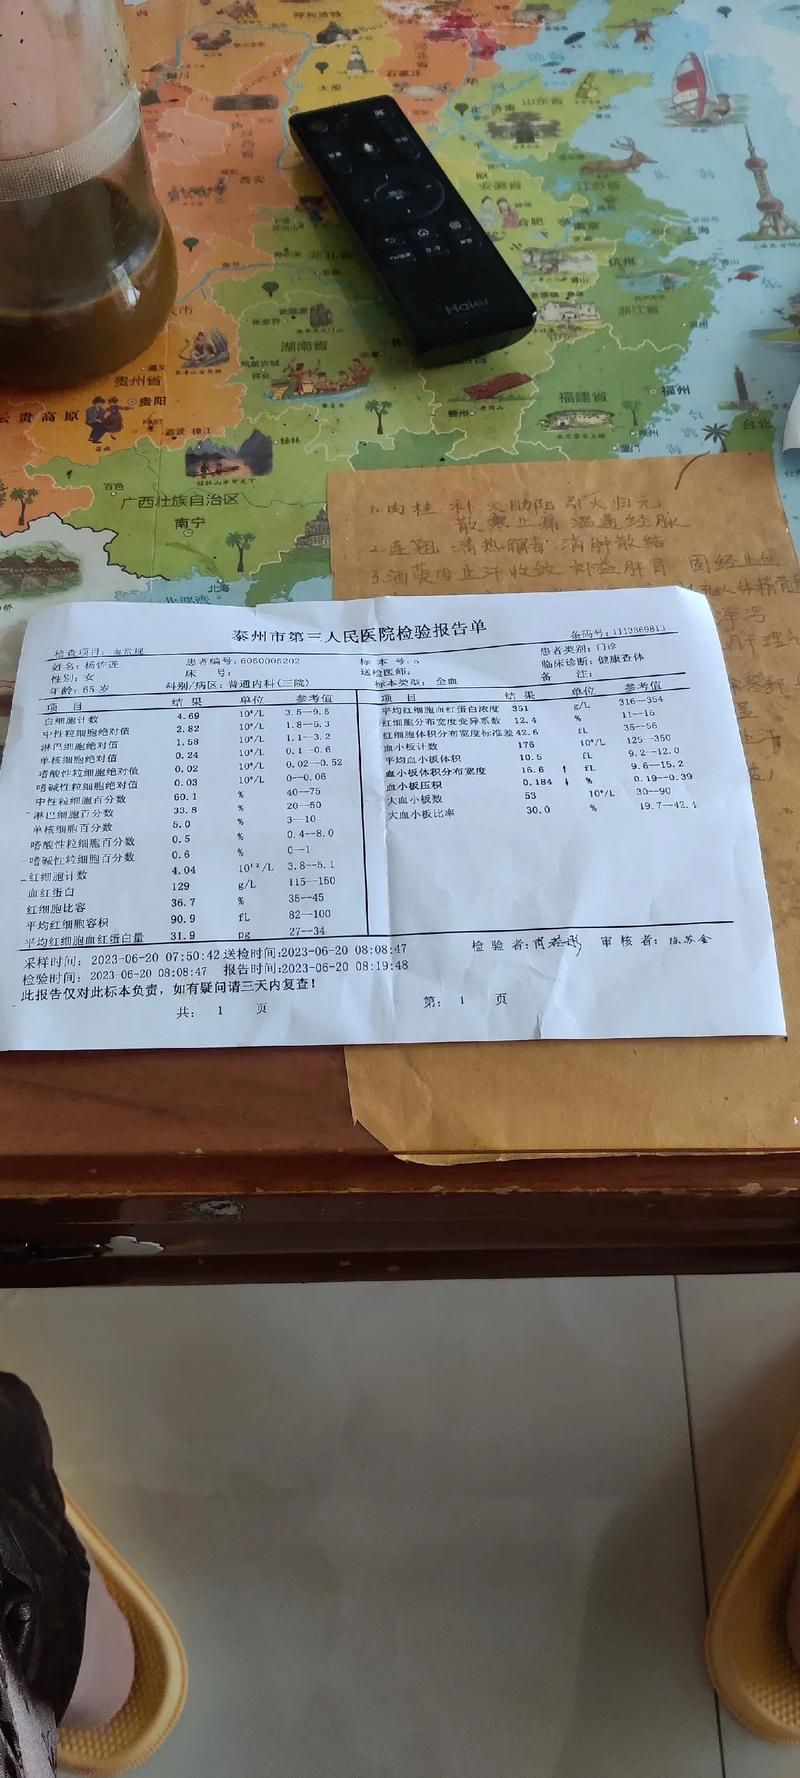 石家庄
太原
济南
山东省
银川
西安
安徽省
江苏省
合肥
南京
上海
杭州
浙江省
湖北省
Haier
湖南省
张家界
怀化
遵义
贵州省
贵阳
云贵高原
福建省
福州
台北
桂林
百色
广西壮族自治区
南宁
北海
1.肉桂 补火助阳 引火归元
散寒止痛 温通经脉
2.连翘 清热解毒 消肿散结
3.酒萸肉 止汗收敛 补益肝肾 固经止血
泰州市第三人民医院检验报告单
检查项目:血常规 条码号:1113869813
姓名:杨佐莲 患者编号:6050005202 标 本 号:5 患者类别:门诊
性别:女 床 号: 送检医师: 临床诊断:健康查体
年龄:65 岁 科别/病区:普通内科(三院) 标本类型: 全血 备 注:
项 目 结 果 单位 参考值
白细胞计数 4.69 10⁹/L 3.5--9.5
中性粒细胞绝对值 2.82 10⁹/L 1.8--6.3
淋巴细胞绝对值 1.58 10⁹/L 1.1--3.2
单核细胞绝对值 0.24 10⁹/L 0.1--0.6
嗜酸性粒细胞绝对值 0.02 10⁹/L 0.02--0.52
嗜碱性粒细胞绝对值 0.03 10⁹/L 0--0.06
中性粒细胞百分数 60.1 % 40--75
淋巴细胞百分数 33.8 % 20--50
单核细胞百分数 5.0 % 3--10
嗜酸性粒细胞百分数 0.5 % 0.4--8.0
嗜碱性粒细胞百分数 0.6 % 0--1
红细胞计数 4.04 10¹²/L 3.8--5.1
血红蛋白 129 g/L 115--150
红细胞比容 36.7 % 35--45
平均红细胞容积 90.9 fL 82--100
平均红细胞血红蛋白量 31.9 pg 27--34
项 目 结 果 单位 参考值
平均红细胞血红蛋白浓度 351 g/L 316--354
红细胞分布宽度变异系数 12.4 % 11--15
红细胞体积分布宽度标准差 42.6 fL 35--56
血小板计数 176 10⁹/L 125--350
平均血小板体积 10.5 fL 9.2--12.0
血小板体积分布宽度 16.6 ↑ fL 9.6--15.2
血小板压积 0.184 ↓ % 0.19--0.39
大血小板数 53 10⁹/L 30--90
大血小板比率 30.0 % 19.7--42.4
采样时间: 2023-06-20 07:50:42 送检时间:2023-06-20 08:08:47 检 验 者: 审 核 者: 陈苏金
检验时间: 2023-06-20 08:08:47 报告时间:2023-06-20 08:19:48
此报告仅对此标本负责,如有疑问请三天内复查!
共: 1 页 第: 1 页